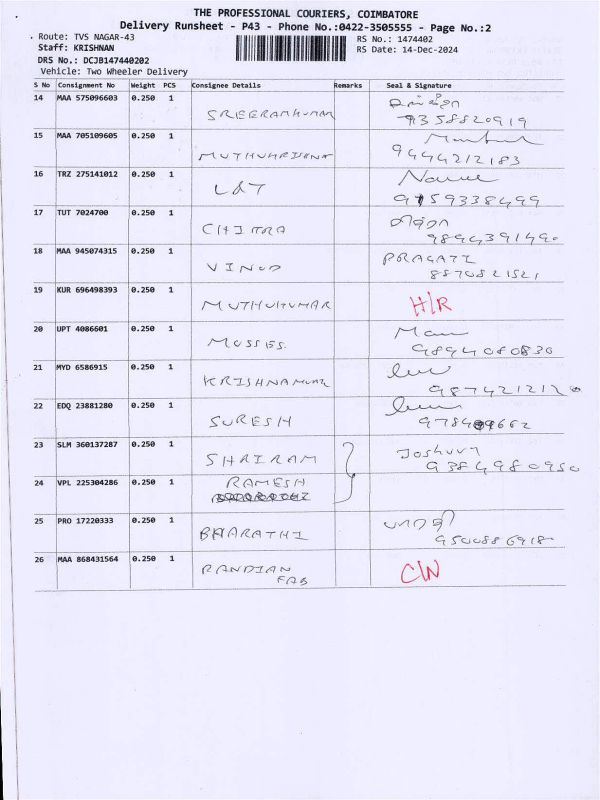 THE PROFESSIONAL COURIERS, COIMBATORE
Delivery Runsheet - P43 - Phone No.:0422-3505555 - Page No.:2
Route: TVS NAGAR-43
RS No.: 1474402
Staff: KRISHNAN
RS Date: 14-Dec-2024
DRS No.: DCJB147440202
Vehicle: Two Wheeler Delivery
S No Consignment No Weight PCS Consignee Details Remarks Seal & Signature
14 MAA 575096603 0.250 1 SREERAMKUMAR
9358820919
15 MAA 705109605 0.250 1
9444212183
16 TRZ 275141012 0.250 1 L&T
9159338499
17 TUT 7024700 0.250 1 CHITRA சித்ரா
9894391490
18 MAA 945074315 0.250 1 VINOD PRAGATI
8870821521
19 KUR 696498393 0.250 1 MUTHUKUMAR H/R
20 UPT 4086601 0.250 1 MOSSES
9894080830
21 MYD 6586915 0.250 1
9874212120
22 EDQ 23881280 0.250 1 SURESH
23 SLM 360137287 0.250 1 SHRIRAM Joshuva
9384980950
24 VPL 225304286 0.250 1 RAMESH
25 PRO 17220333 0.250 1 BHARATHI பாரதி
9500886918
26 MAA 868431564 0.250 1 PANDIAN FAB C/N